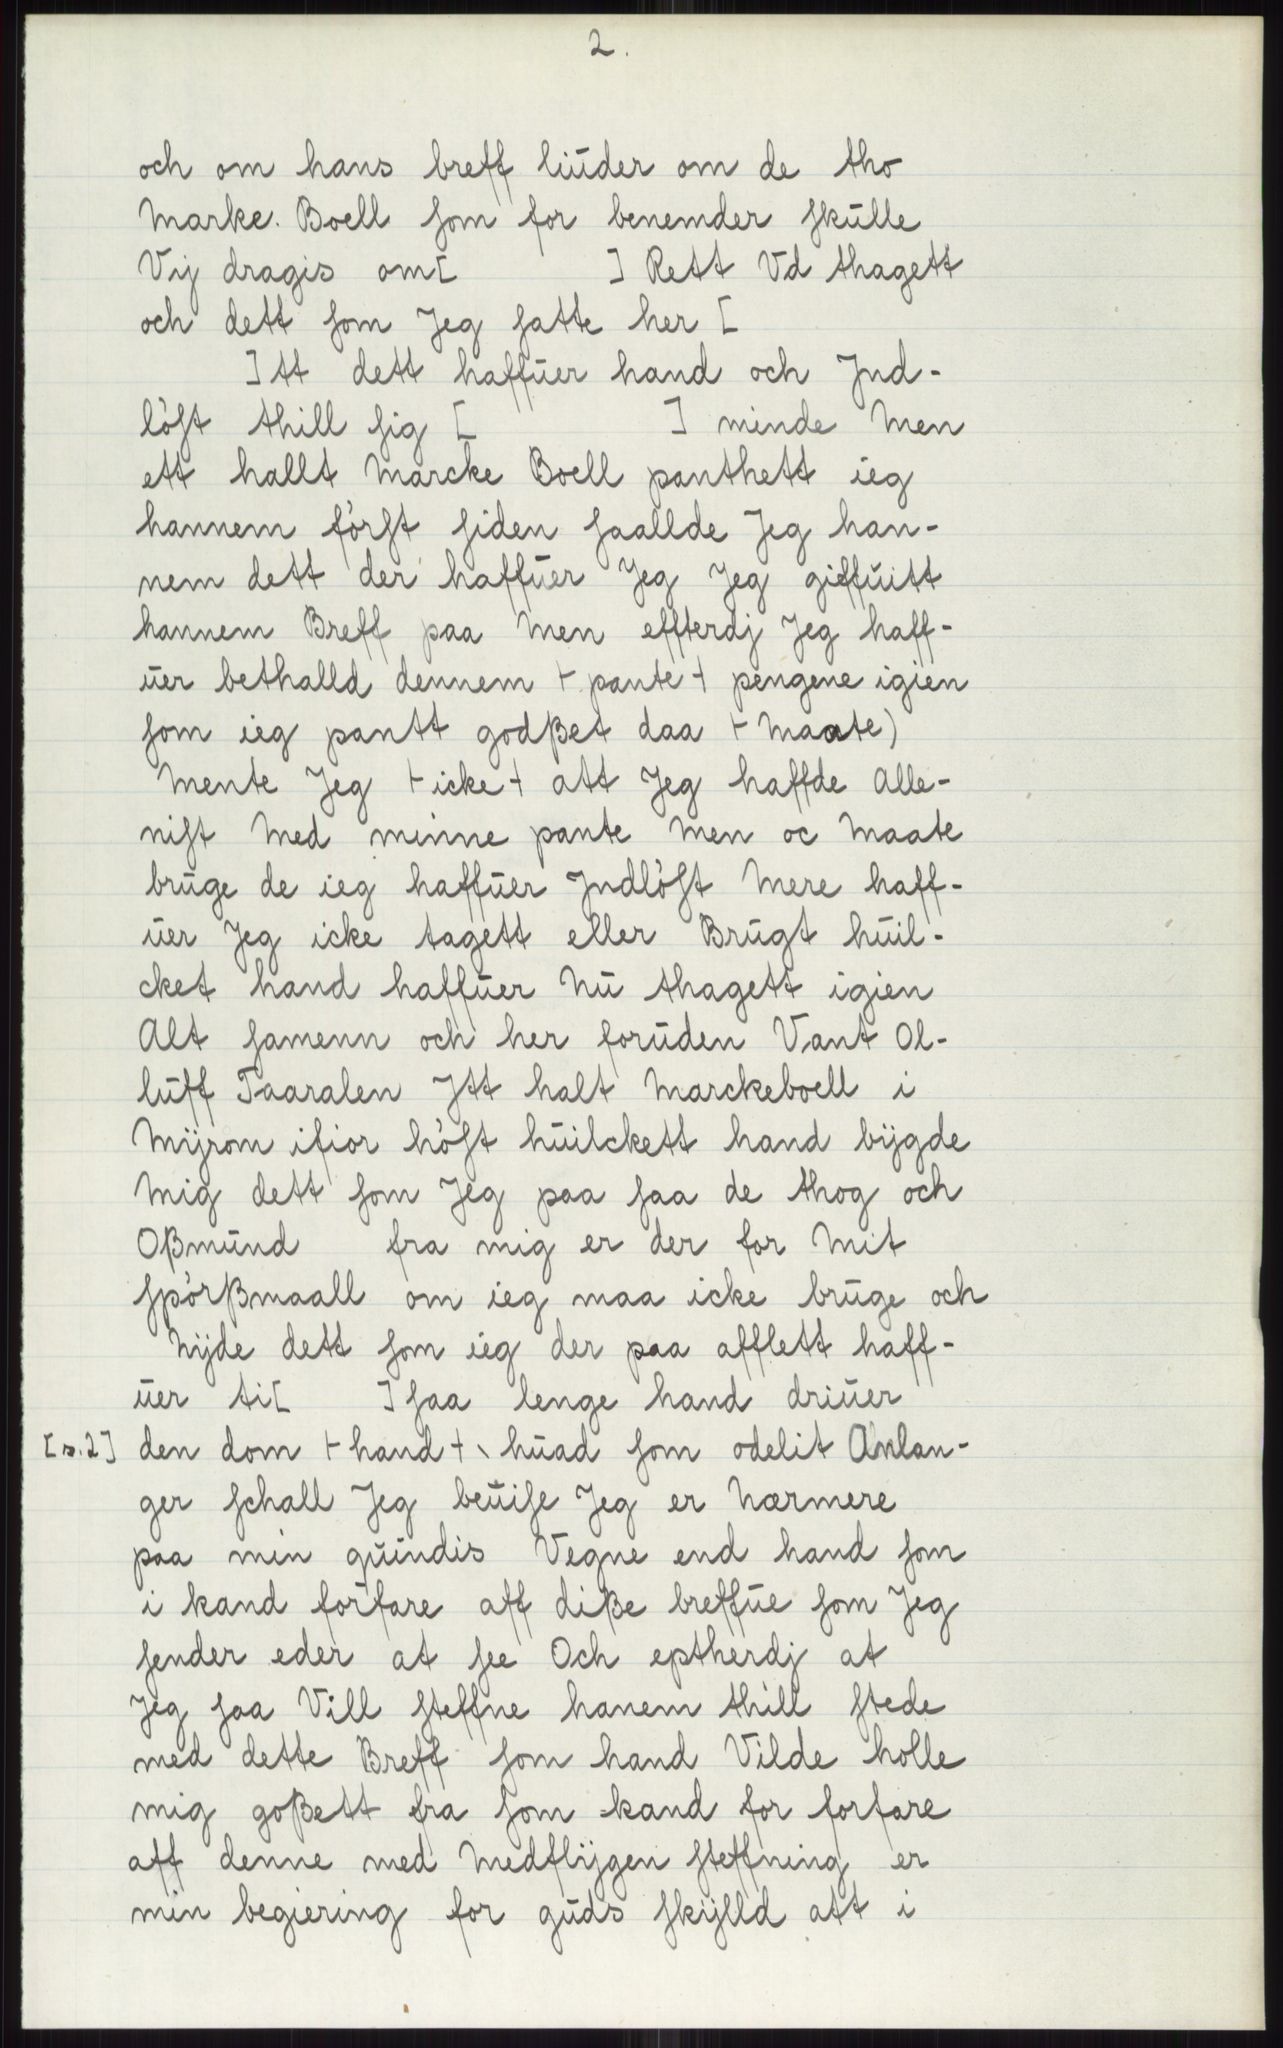 2.
och om hans breff liuder om de tho
Marke. Boell som for benemder skulle
Vij dragis om[ ] Rett Vd thagett
och dett som Jeg satte her [
]tt dett haffuer hand och Jnd-
löst thill sig [ ] minde Men
ett hallt Marcke Boell panthett ieg
hannem först siden saallde Jeg han-
nem dett der haffuer Jeg Jeg giffuitt
hannem Breff paa Men effterdj Jeg haff-
uer bethalld dennem ⊢ pante ⊣ pengene igien
som ieg pantt godßet daa ⊢ Maate)
Mente Jeg ⊢ icke ⊣ att Jeg haffde Alle-
nist Med minne pante Men oc Maate
bruge de ieg haffuer Jndlöst Mere haff-
uer Jeg icke tagett eller Brugt huil-
cket hand haffuer Nu thagett igien
Alt samenn och her foruden Vant Ol-
luff Taaralen Jtt halt Marckeboell i
Mÿrom ifior höst huilckett hand bÿgde
Mig dett som Jeg paa saa de thog och
Oßmund fra mig er der for Mit
spörßmaall om ieg maa icke bruge och
Nÿde dett som ieg der paa afflett haff-
uer ti[ ] saa lenge hand driuer
[s.2] den dom ⊢ hand ⊣ huad som odelit Anlan-
ger schall Jeg beuise Jeg er Nærmere
paa min quindis Vegne end hand som
i kand forfare aff diße breffue som Jeg
sender eder at see Och eptherdj at
Jeg saa Vill steffne hanem thill stede
med dette Breff som hand Vilde holle
mig goßett fra som kand for forfare
aff denne med Medflÿgen steffning er
min begiering for guds skÿlld att i